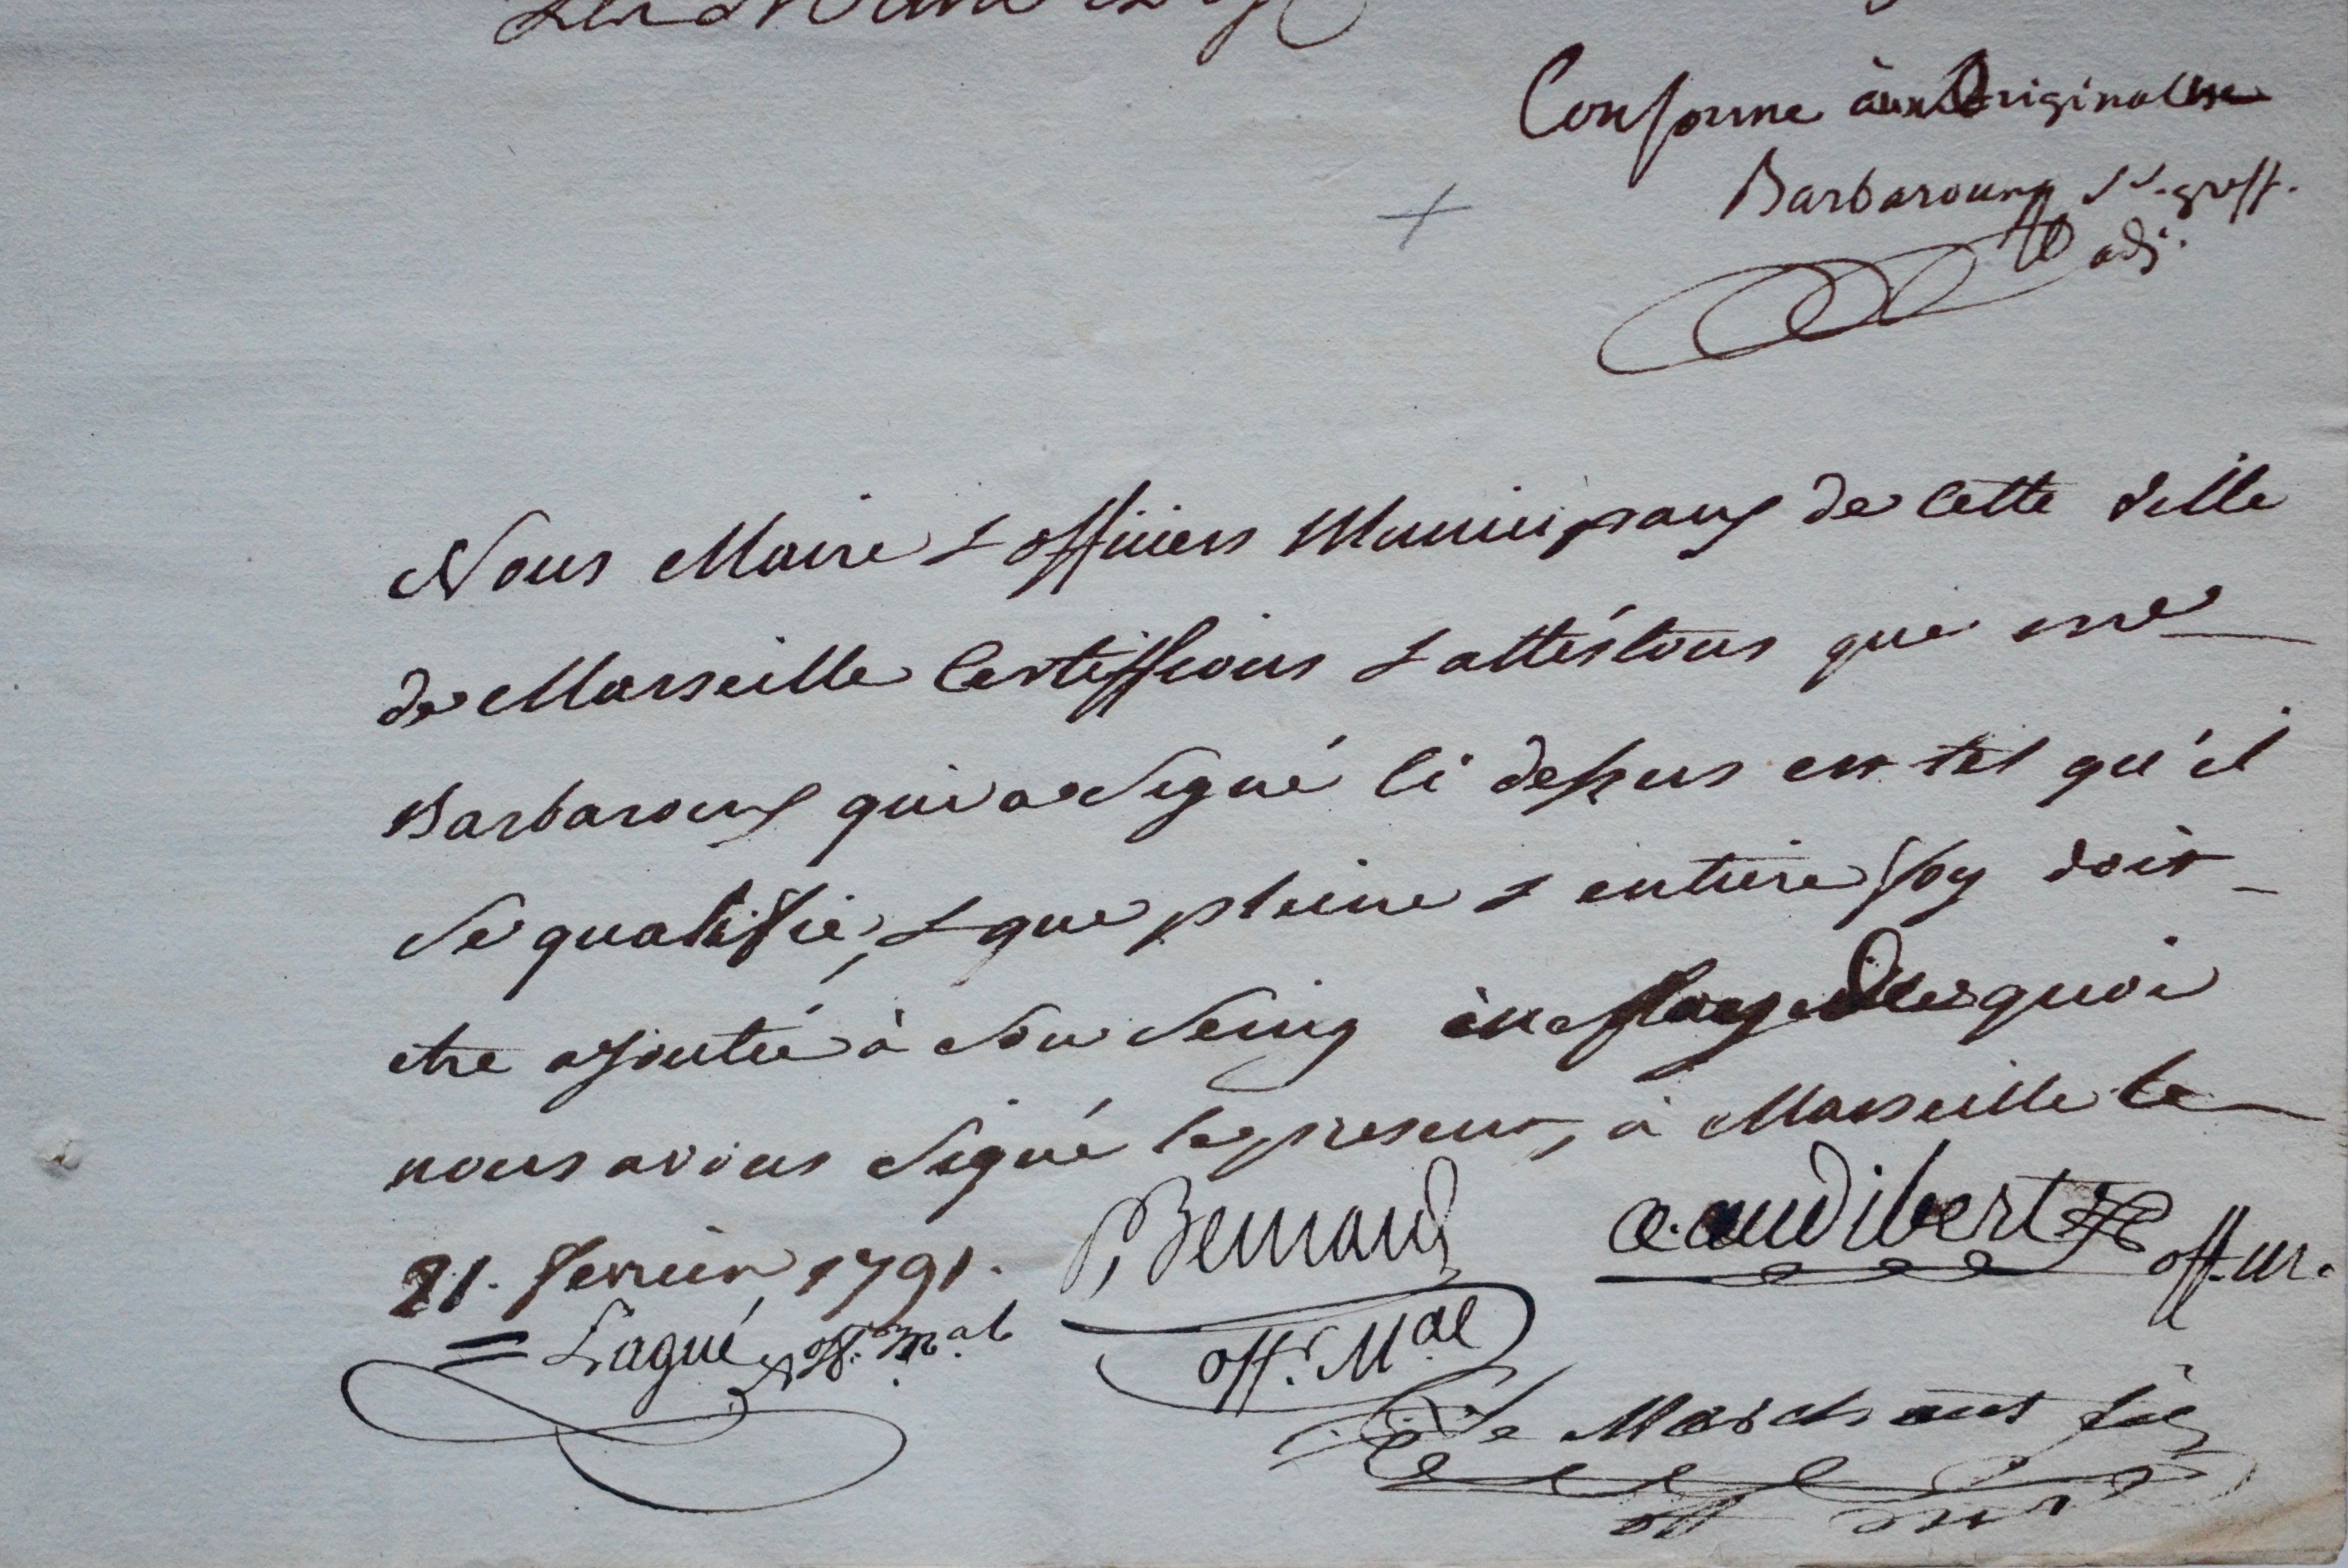 Conforme aux Originalles
Barbaroux s.re-greff.
adj.
Nous Maire & officiers Municipaux de Cette Ville
de Marseille Certiffions & attéstons que me
Barbaroux qui a Signé Ci dessus est tel qu'il
Se qualiffie, & que pleine & entiere ffoy doit
etre ajoutée à Son Seing en ffoy de quoi
nous avons Signé le present, à Marseille le
21. fevrier 1791.
P. Bernard
a. audibert off. m.
Lagué off. m.al
off. M.al
Le Marchant
off